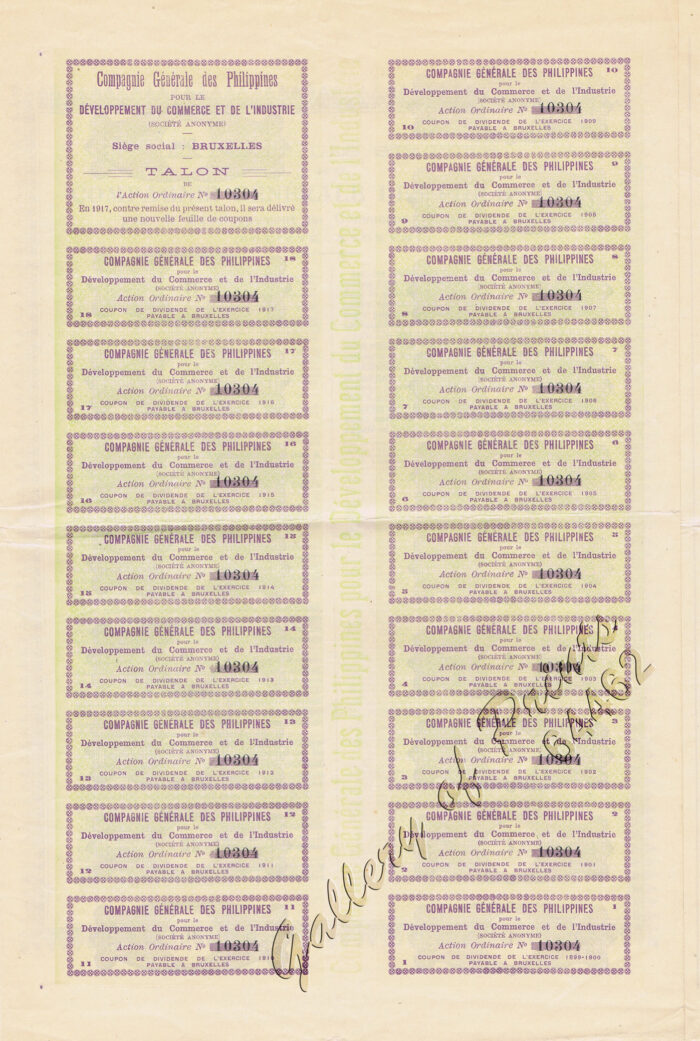 Compagnie Générale des Philippines
POUR LE
DÉVELOPPEMENT DU COMMERCE ET DE L'INDUSTRIE
(SOCIÉTÉ ANONYME)
Siège social : BRUXELLES
TALON
DE
l'Action Ordinaire No 10304
En 1917, contre remise du présent talon, il sera délivré
une nouvelle feuille de coupons
COMPAGNIE GÉNÉRALE DES PHILIPPINES 18
pour le
Développement du Commerce et de l'Industrie
(SOCIÉTÉ ANONYME)
Action Ordinaire No 10304
COUPON DE DIVIDENDE DE L'EXERCICE 1917
18 PAYABLE A BRUXELLES
COMPAGNIE GÉNÉRALE DES PHILIPPINES 17
pour le
Développement du Commerce et de l'Industrie
(SOCIÉTÉ ANONYME)
Action Ordinaire No 10304
COUPON DE DIVIDENDE DE L'EXERCICE 1916
17 PAYABLE A BRUXELLES
COMPAGNIE GÉNÉRALE DES PHILIPPINES 16
pour le
Développement du Commerce et de l'Industrie
(SOCIÉTÉ ANONYME)
Action Ordinaire No 10304
COUPON DE DIVIDENDE DE L'EXERCICE 1915
16 PAYABLE A BRUXELLES
COMPAGNIE GÉNÉRALE DES PHILIPPINES 15
pour le
Développement du Commerce et de l'Industrie
(SOCIÉTÉ ANONYME)
Action Ordinaire No 10304
COUPON DE DIVIDENDE DE L'EXERCICE 1914
15 PAYABLE A BRUXELLES
COMPAGNIE GÉNÉRALE DES PHILIPPINES 14
pour le
Développement du Commerce et de l'Industrie
(SOCIÉTÉ ANONYME)
Action Ordinaire No 10304
COUPON DE DIVIDENDE DE L'EXERCICE 1913
14 PAYABLE A BRUXELLES
COMPAGNIE GÉNÉRALE DES PHILIPPINES 13
pour le
Développement du Commerce et de l'Industrie
(SOCIÉTÉ ANONYME)
Action Ordinaire No 10304
COUPON DE DIVIDENDE DE L'EXERCICE 1912
13 PAYABLE A BRUXELLES
COMPAGNIE GÉNÉRALE DES PHILIPPINES 12
pour le
Développement du Commerce et de l'Industrie
(SOCIÉTÉ ANONYME)
Action Ordinaire No 10304
COUPON DE DIVIDENDE DE L'EXERCICE 1911
12 PAYABLE A BRUXELLES
COMPAGNIE GÉNÉRALE DES PHILIPPINES 11
pour le
Développement du Commerce et de l'Industrie
(SOCIÉTÉ ANONYME)
Action Ordinaire No 10304
COUPON DE DIVIDENDE DE L'EXERCICE 1910
11 PAYABLE A BRUXELLES
COMPAGNIE GÉNÉRALE DES PHILIPPINES 10
pour le
Développement du Commerce et de l'Industrie
(SOCIÉTÉ ANONYME)
Action Ordinaire No 10304
COUPON DE DIVIDENDE DE L'EXERCICE 1909
10 PAYABLE A BRUXELLES
COMPAGNIE GÉNÉRALE DES PHILIPPINES 9
pour le
Développement du Commerce et de l'Industrie
(SOCIÉTÉ ANONYME)
Action Ordinaire No 10304
COUPON DE DIVIDENDE DE L'EXERCICE 1908
9 PAYABLE A BRUXELLES
COMPAGNIE GÉNÉRALE DES PHILIPPINES 8
pour le
Développement du Commerce et de l'Industrie
(SOCIÉTÉ ANONYME)
Action Ordinaire No 10304
COUPON DE DIVIDENDE DE L'EXERCICE 1907
8 PAYABLE A BRUXELLES
COMPAGNIE GÉNÉRALE DES PHILIPPINES 7
pour le
Développement du Commerce et de l'Industrie
(SOCIÉTÉ ANONYME)
Action Ordinaire No 10304
COUPON DE DIVIDENDE DE L'EXERCICE 1906
7 PAYABLE A BRUXELLES
COMPAGNIE GÉNÉRALE DES PHILIPPINES 6
pour le
Développement du Commerce et de l'Industrie
(SOCIÉTÉ ANONYME)
Action Ordinaire No 10304
COUPON DE DIVIDENDE DE L'EXERCICE 1905
6 PAYABLE A BRUXELLES
COMPAGNIE GÉNÉRALE DES PHILIPPINES 5
pour le
Développement du Commerce et de l'Industrie
(SOCIÉTÉ ANONYME)
Action Ordinaire No 10304
COUPON DE DIVIDENDE DE L'EXERCICE 1904
5 PAYABLE A BRUXELLES
COMPAGNIE GÉNÉRALE DES PHILIPPINES 4
pour le
Développement du Commerce et de l'Industrie
(SOCIÉTÉ ANONYME)
Action Ordinaire No 10304
COUPON DE DIVIDENDE DE L'EXERCICE 1903
4 PAYABLE A BRUXELLES
COMPAGNIE GÉNÉRALE DES PHILIPPINES 3
pour le
Développement du Commerce et de l'Industrie
(SOCIÉTÉ ANONYME)
Action Ordinaire No 10304
COUPON DE DIVIDENDE DE L'EXERCICE 1902
3 PAYABLE A BRUXELLES
COMPAGNIE GÉNÉRALE DES PHILIPPINES 2
pour le
Développement du Commerce et de l'Industrie
(SOCIÉTÉ ANONYME)
Action Ordinaire No 10304
COUPON DE DIVIDENDE DE L'EXERCICE 1901
2 PAYABLE A BRUXELLES
COMPAGNIE GÉNÉRALE DES PHILIPPINES 1
pour le
Développement du Commerce et de l'Industrie
(SOCIÉTÉ ANONYME)
Action Ordinaire No 10304
COUPON DE DIVIDENDE DE L'EXERCICE 1899-1900
1 PAYABLE A BRUXELLES
Gallery of Prints
64462